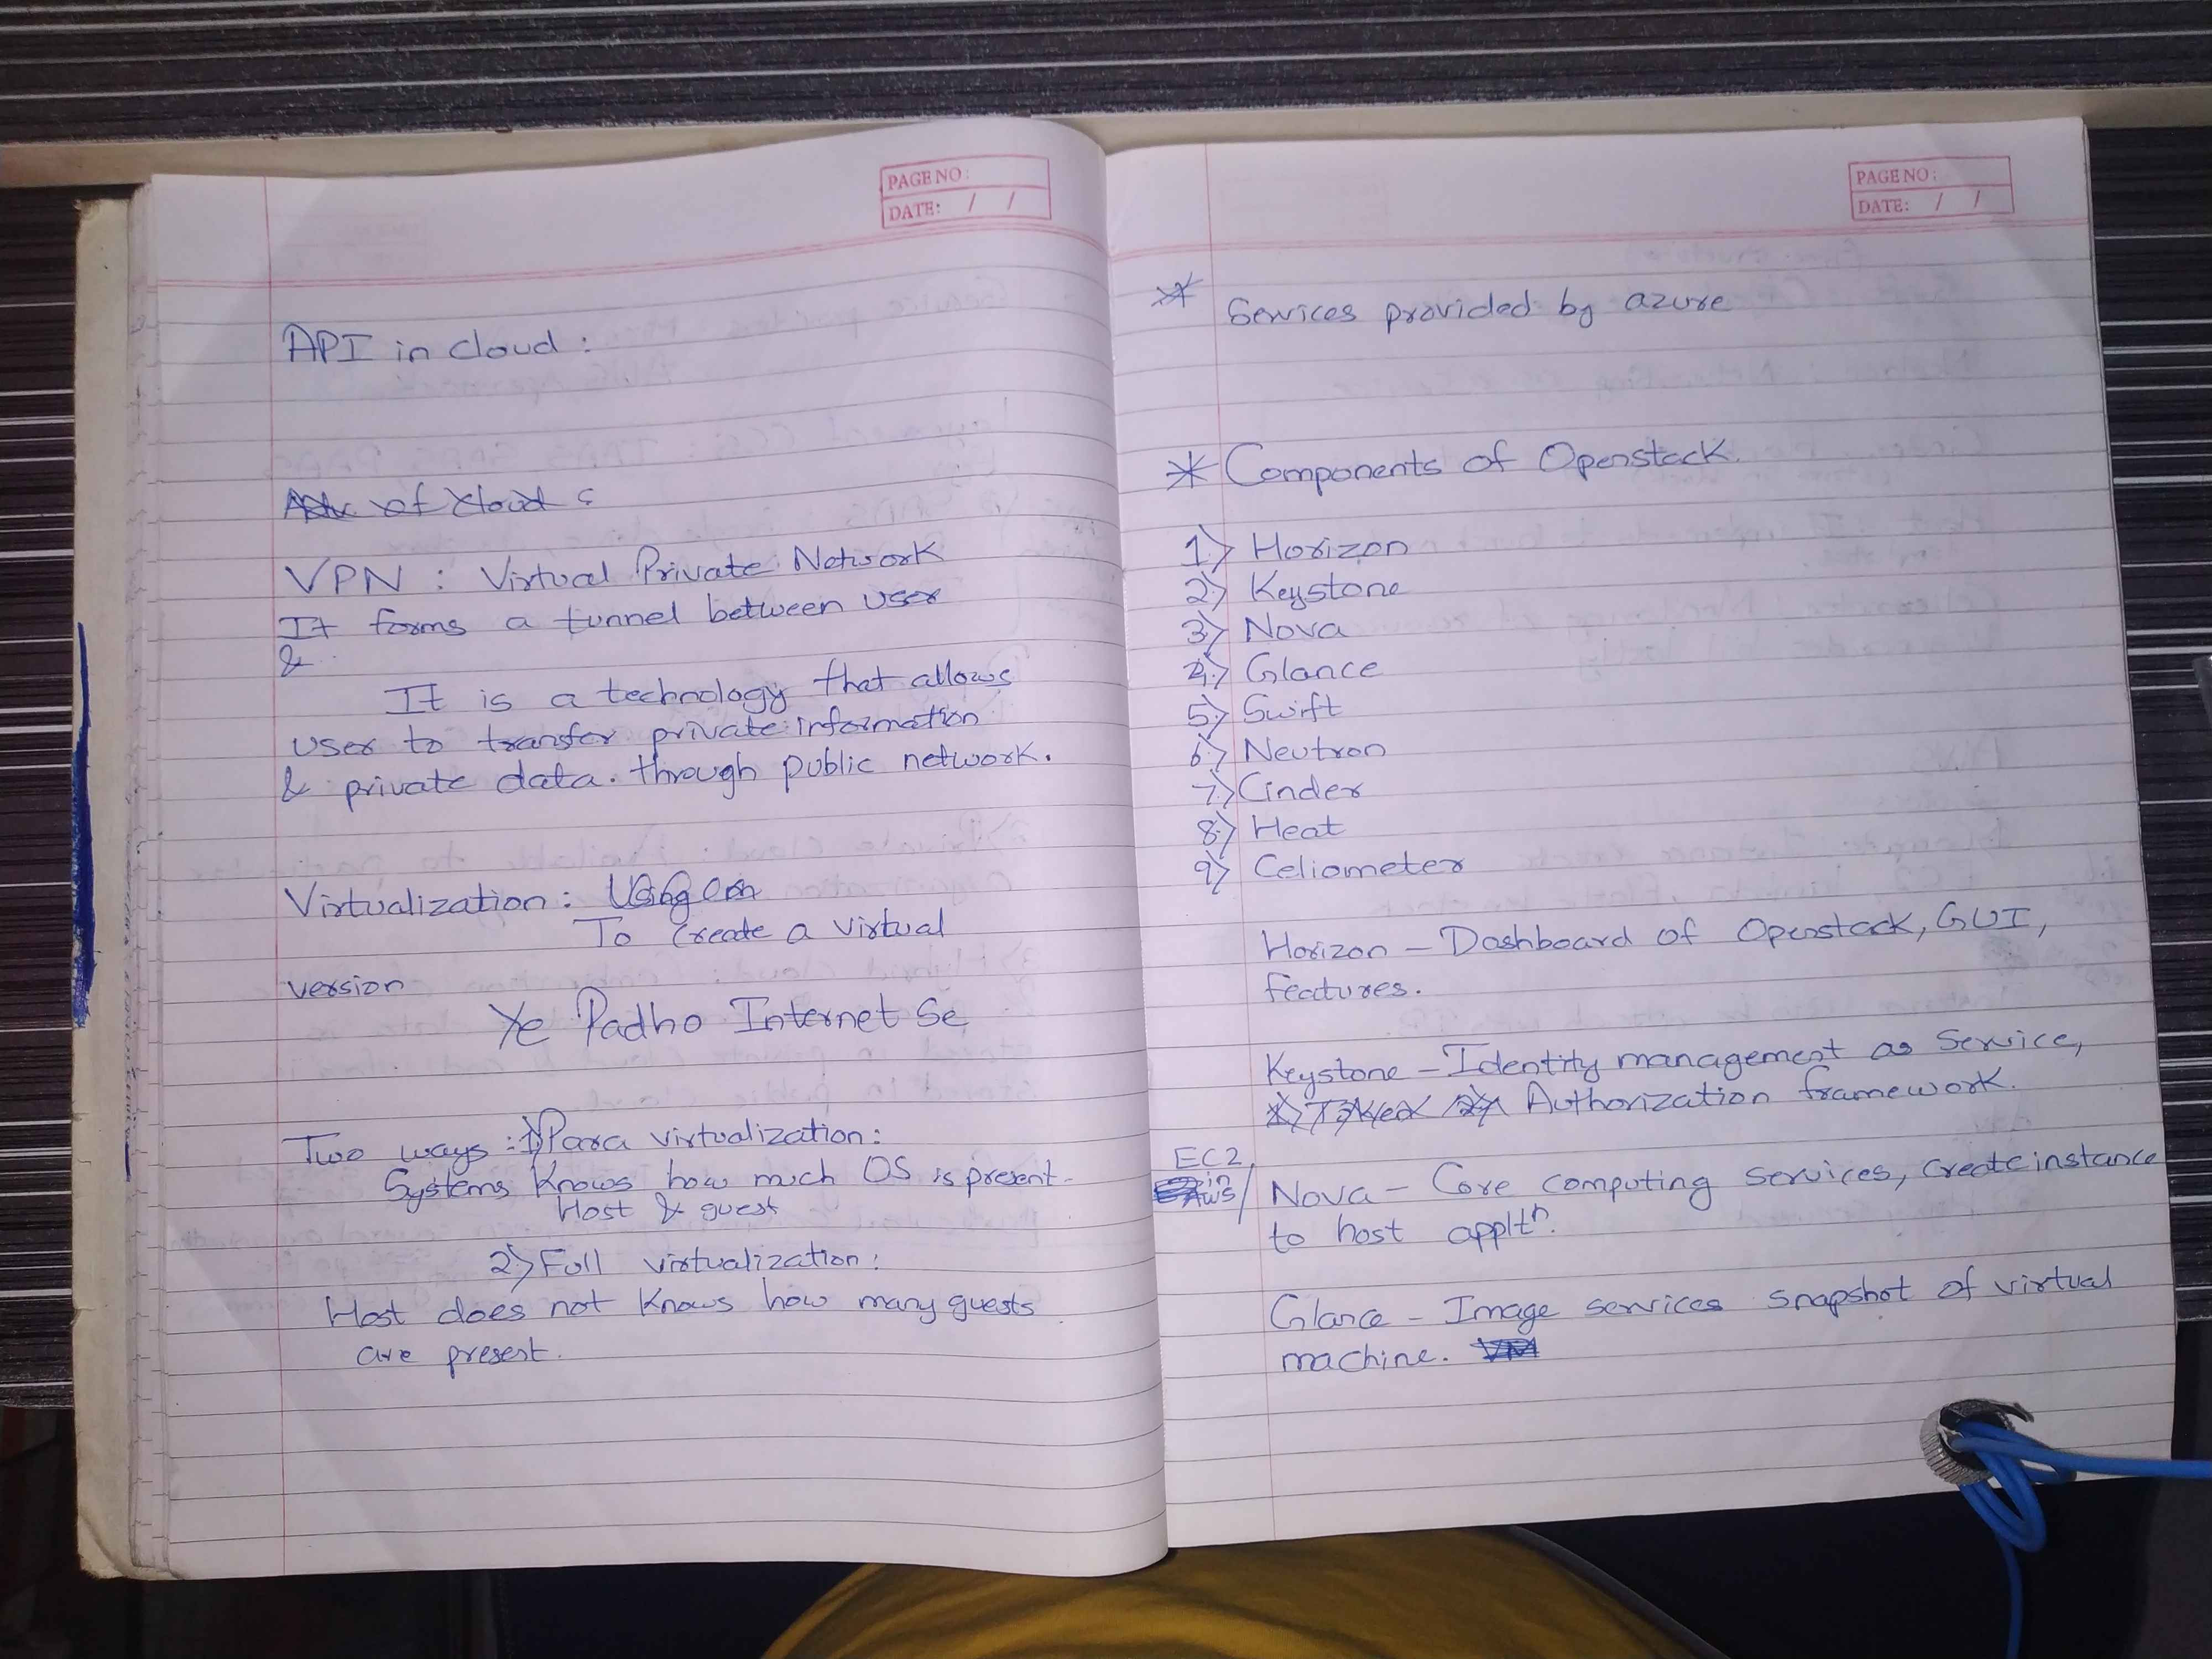 PAGE NO:
DATE: / /
API in cloud :
of cloud :
VPN : Virtual Private Network
It forms a tunnel between user
&
It is a technology that allows
user to transfer private information
& private data. through public network.
Virtualization :
To Create a virtual
version
Ye Padho Internet Se
Two ways : 1) Para virtualization :
Systems knows how much OS is present.
Host & guest
2) Full virtualization :
Host does not knows how many guests
are present.
PAGE NO:
DATE: / /
* Services provided by azure
* Components of Openstack.
1) Horizon
2) Keystone
3) Nova
4) Glance
5) Swift
6) Neutron
7) Cinder
8) Heat
9) Celiometer
Horizon - Dashboard of Openstack, GUI,
features.
Keystone - Identity management as Service,
Authorization framework.
EC2
in
AWS / Nova - Core computing services, Create instance
to host appltn.
Glance - Image services snapshot of virtual
machine. VM